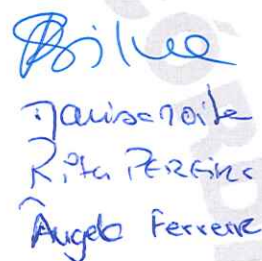 Silva
Marisa Noite
Rita Pereira
Ângela Ferreira